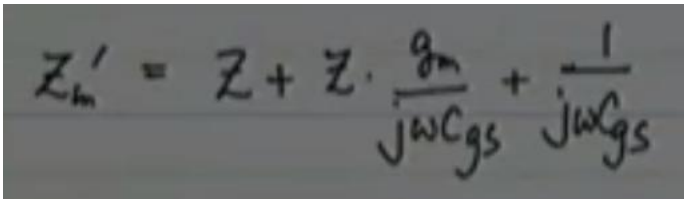 Z_{in}' = Z + Z · \frac{g_m}{jωC_{gs}} + \frac{1}{jωC_{gs}}